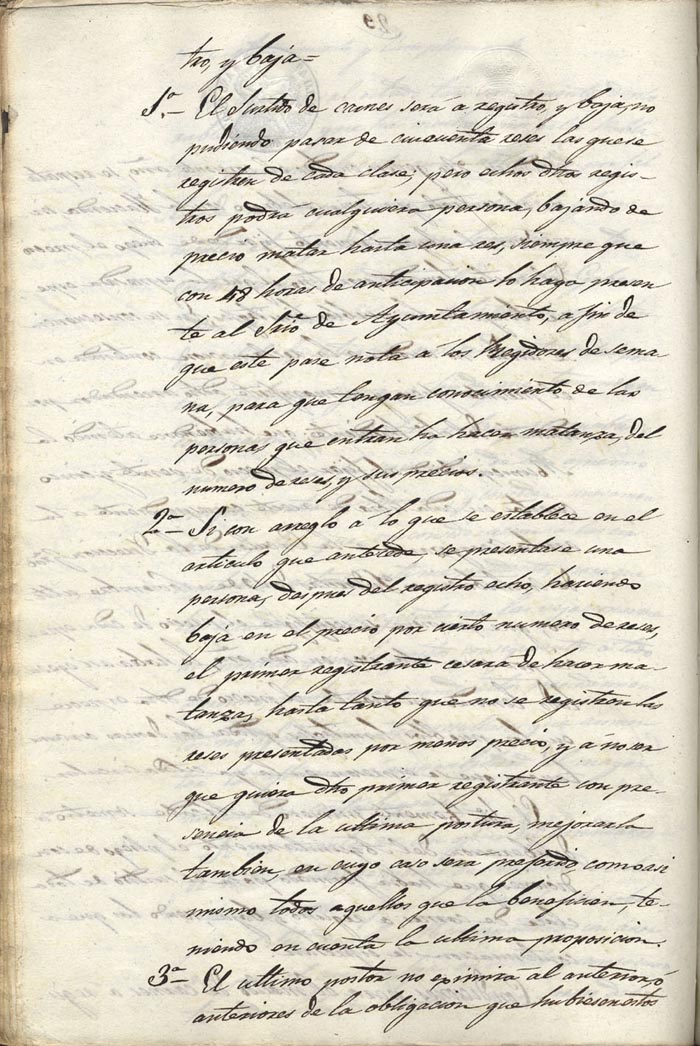 tro, y baja=
1ª- El Surtido de carnes será a registro, y baja, no
pudiendo pasar de cincuenta reses las que se
registren de cada clase; pero echos dhos regis-
tros podrá cualquiera persona, bajando de
precio matar hasta una res, siempre que
con 48 horas de anticipacion lo haga presen
te al Srio de Ayuntamiento, a fin de
que este pase nota a los Regidores de sema
na, para que tengan conocimiento de las
personas que entran ha hacer matanza, del
numero de reses, y sus precios.
2ª- Si con arreglo a lo que se establece en el
articulo que antecede, se presentase una
persona, despues del registro echo, haciendo
baja en el precio por cierto numero de reses,
el primer registrante cesara de hacer ma-
tanza, hasta tanto que no se registren las
reses presentadas por menos precio, y á no ser
que quiera dho primer registrante con pre-
sencia de la ultima postura, mejorarla
tambien, en cuyo caso sera preferido, como asi
mismo todos aquellos que la beneficien, te-
niendo en cuenta la ultima proposicion.
3ª- El ultimo postor no eximirá al anterior ó
anteriores de la obligacion que hubiesen estos